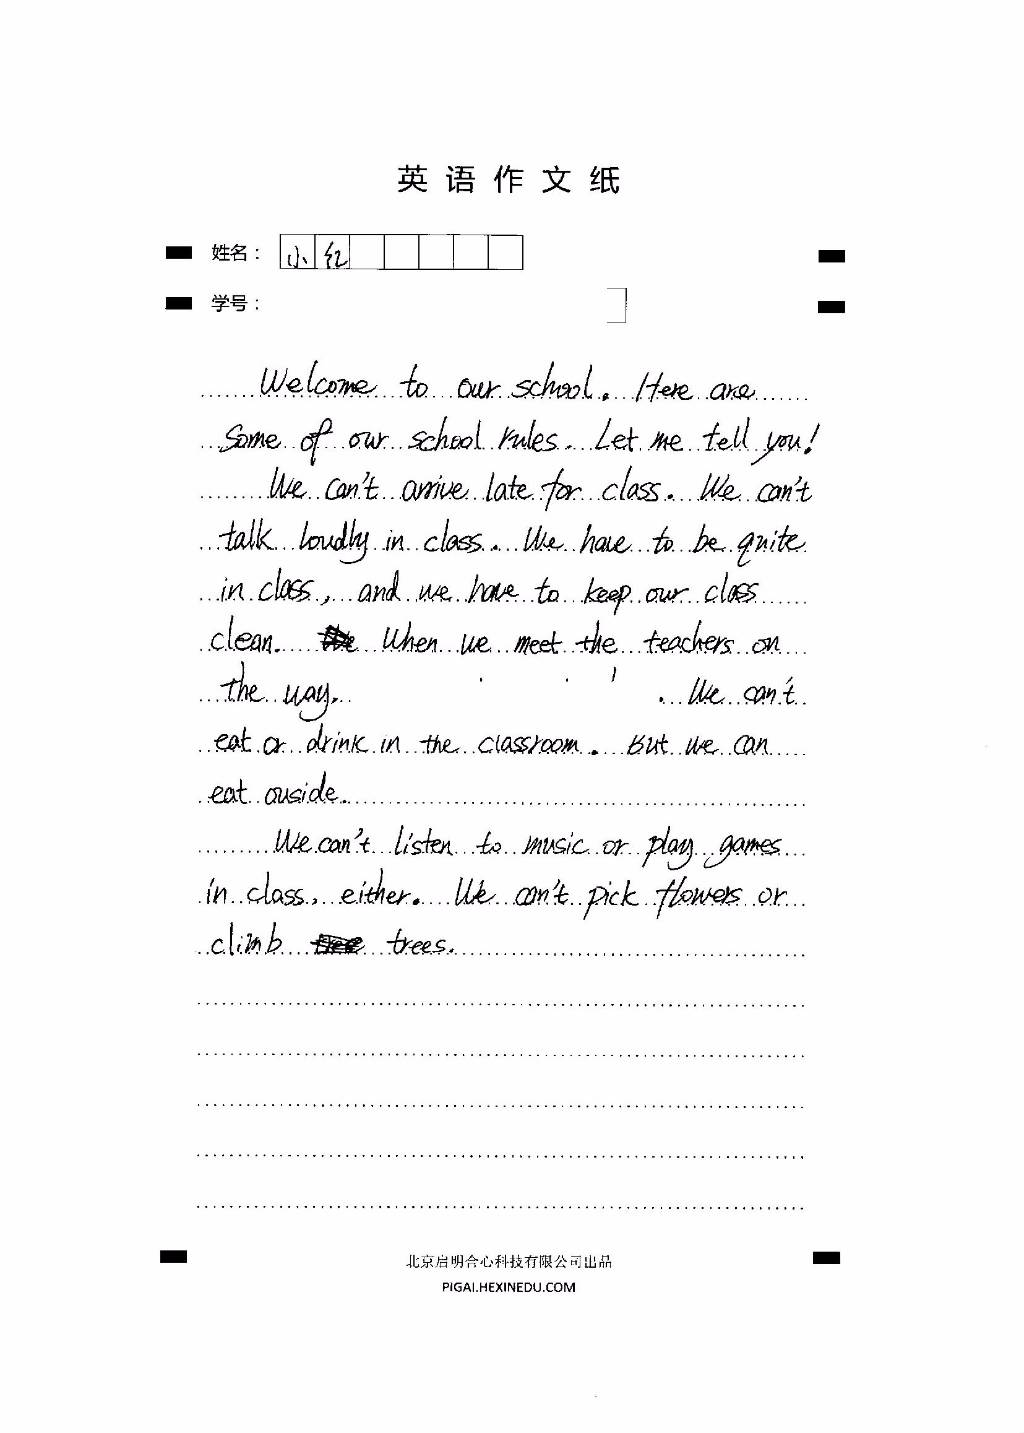 英语作文纸
姓名： 小红
学号：
Welcome to our school. Here are
Some of our school rules. Let me tell you!
We can't arrive late for class. We can't
talk loudly in class. We have to be quite
in class, and we have to keep our class
clean. When we meet the teachers on
the way. We can't
eat or drink in the classroom. But we can
eat ouside.
We can't listen to music or play games
in class, either. We can't pick flowers or
climb trees.
北京启明合心科技有限公司出品
PIGAI.HEXINEDU.COM